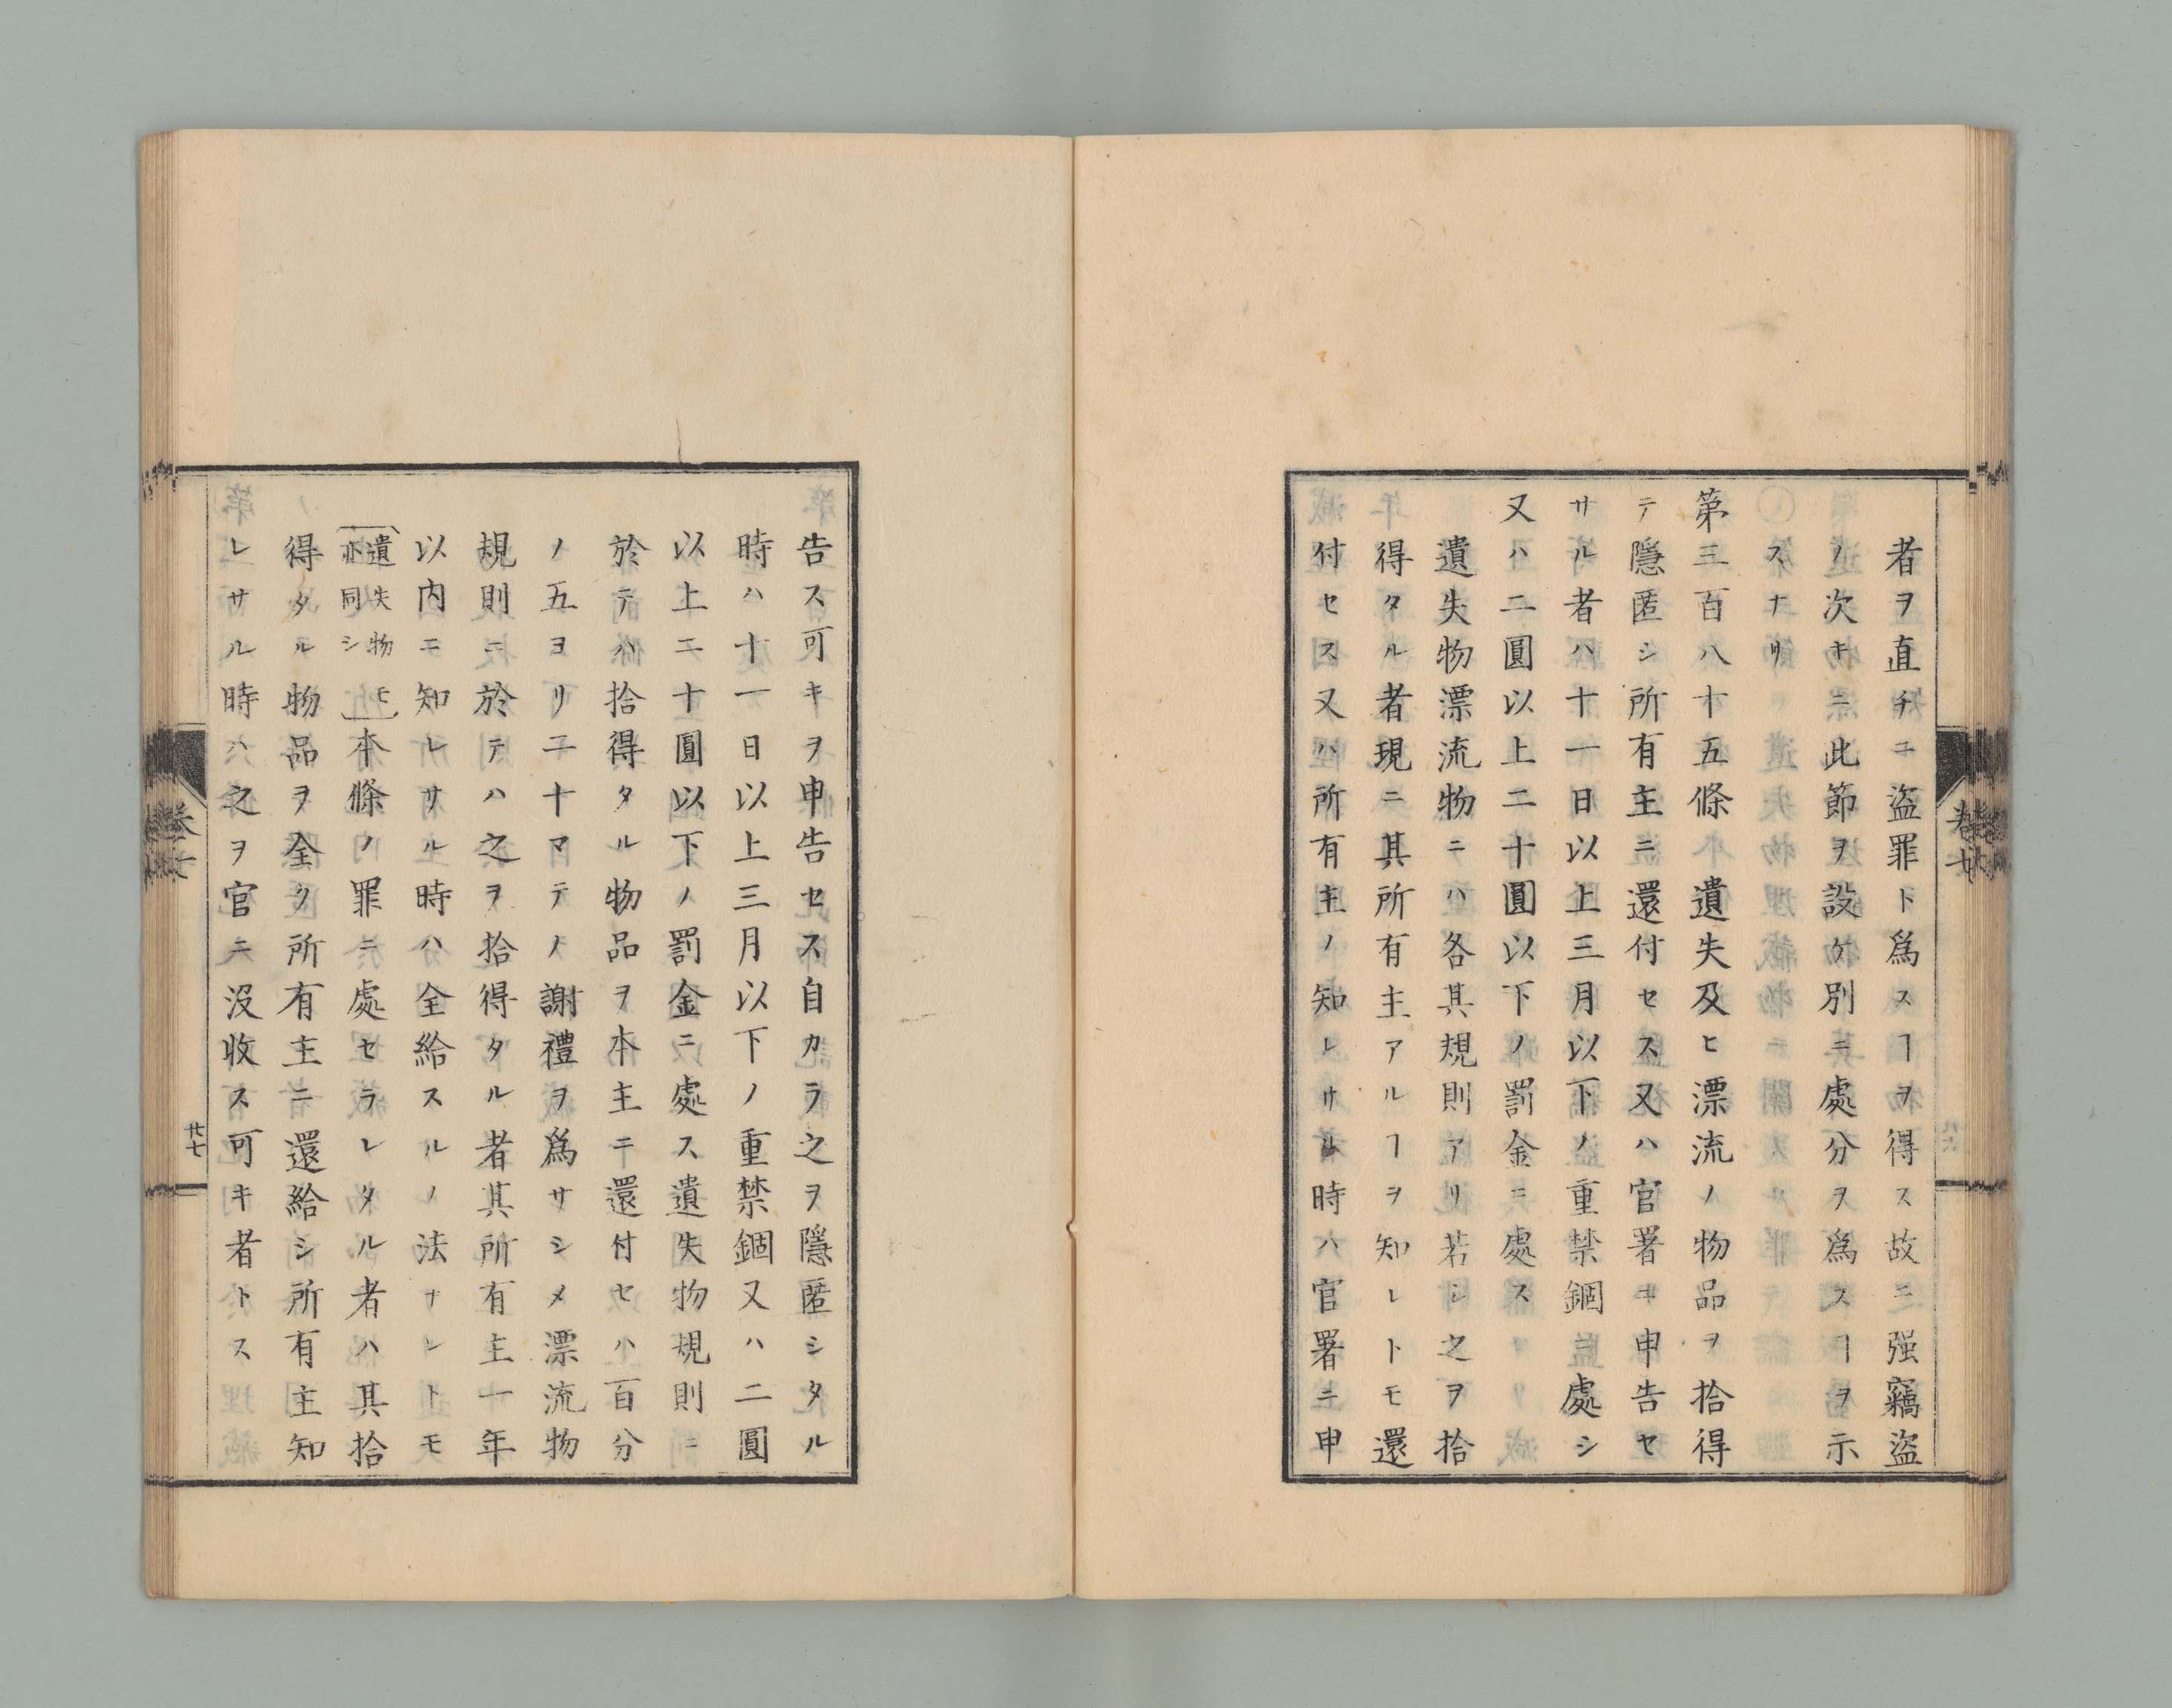 者ヲ直チニ盗罪ト爲スヿヲ得ス故ニ强竊盗
ノ次キニ此節ヲ設ケ別ニ處分ヲ爲スヿヲ示
スナリ
第三百八十五條遺失及ヒ漂流ノ物品ヲ拾得
テ隱匿シ所有主ニ還付セス又ハ官署ヰ申告セ
サル者ハ十一日以上三月以下ノ重禁錮ニ處シ
又ハ二圓以上二十圓以下ノ罰金ニ處ス
遺失物漂流物ニハ各其規則アリ若シ之ヲ拾
得タル者現ニ其所有主アルヿヲ知レトモ還
付セス又ハ所有主ノ知レサル時ハ官署ニ申
告ス可キヲ申告セス自カラ之ヲ隱匿シタル
時ハ十一日以上三月以下ノ重禁錮又ハ二圓
以上二十圓以下ノ罰金ニ處ス遺失物規則ニ
於テハ拾得タル物品ヲ本主ニ還付セハ百分
ノ五ヨリ二十マテノ謝禮ヲ爲サシメ漂流物
規則ニ於テハ之ヲ拾得タル者其所有主一年
以内ニ知レサル時ハ全給スルノ法ナレトモ
遺失物モ
亦同シ
本條ノ罪ニ處セラレタル者ハ其拾
得タル物品ヲ全ク所有主ニ還給シ所有主知
レサル時ハ之ヲ官ニ沒收ス可キ者トス
廿七